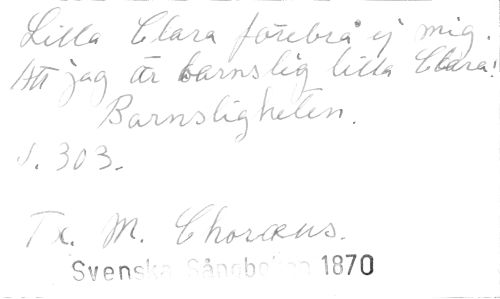 Lilla Clara förebrå ej mig.
Att jag är barnslig lilla Clara!
Barnsligheten.
s. 303.
Tx. M. Choræus.
Svenska Sångboken 1870